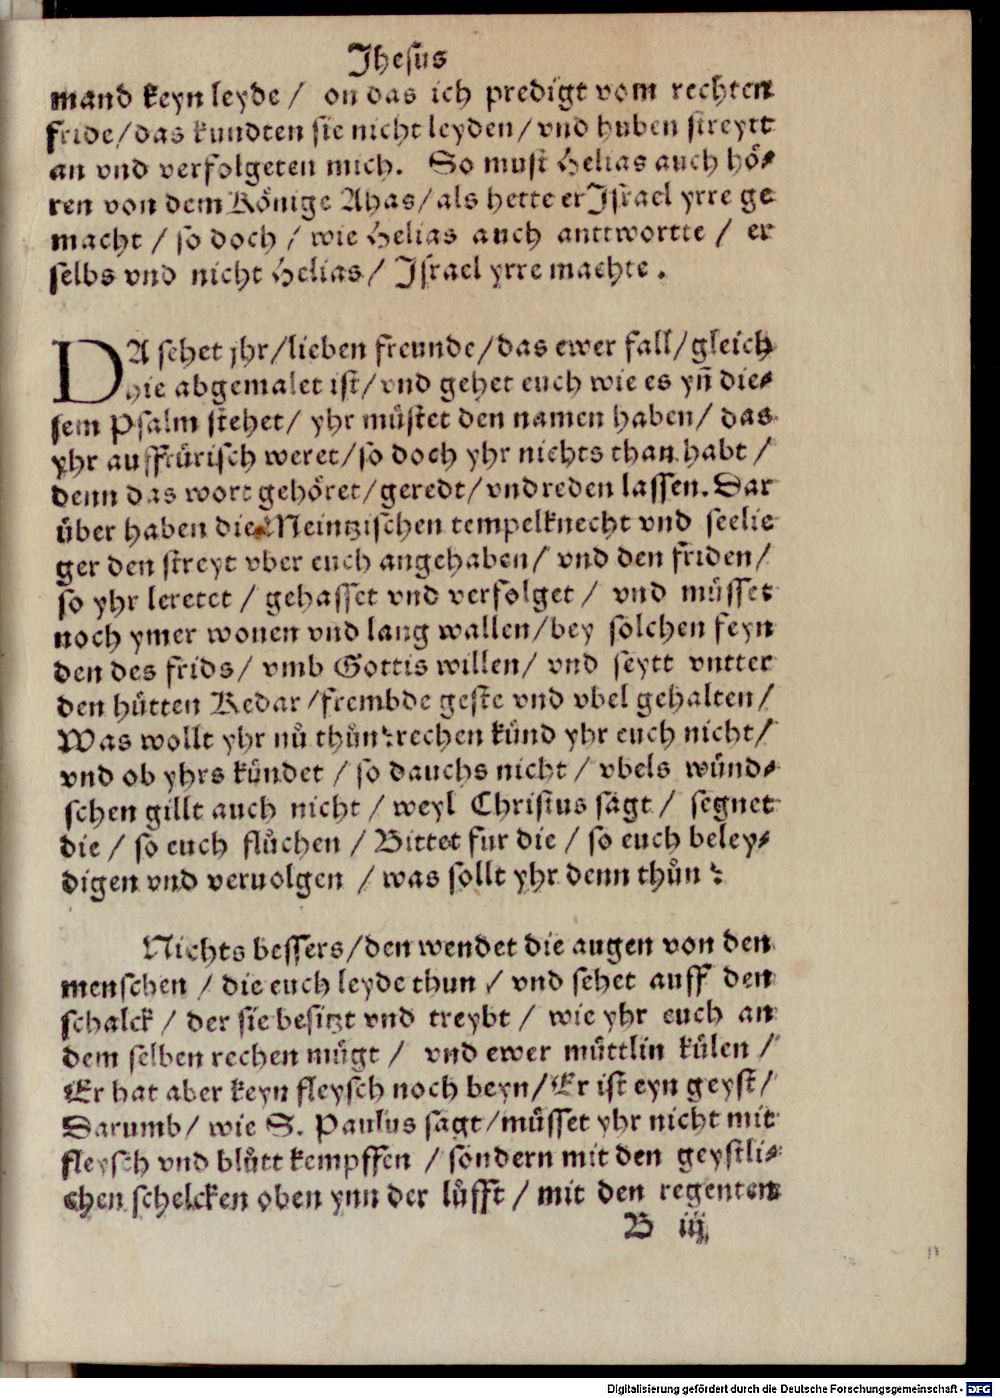 Jhesus
mand keyn leyde / on das ich predigt vom rechten
fride/das kundten sie nicht leyden/vnd huben streytt
an vnd verfolgeten mich. So must Helias auch hö⸗
ren von dem Könige Ahas/als hette er Jsrael yrre ge
macht / so doch / wie Helias auch anttwortte / er
selbs vnd nicht Helias/ Jsrael yrre machte .
DA sehet yhr/lieben freunde/das ewer fall/gleich
hie abgemalet ist/vnd gehet euch wie es yñ die⸗
sem Psalm stehet/ yhr müstet den namen haben/ das
yhr auffrürisch weret/so doch yhr nichts than habt /
denn das wort gehöret/geredt/vnd reden lassen. Dar
über haben die Meintzischen tempelknecht vnd seelie
ger den streyt vber euch angehaben/ vnd den friden/
so yhr leretet / gehasset vnd verfolget / vnd müsset
noch ymer wonen vnd lang wallen/bey solchen feyn
den des frids/ vmb Gottis willen/ vnd seytt vntter
den hütten Kedar/frembde geste vnd vbel gehalten/
Was wollt yhr nů thůn?rechen künd yhr euch nicht/
vnd ob yhrs kündet / so dauchs nicht / vbels wünd⸗
schen gillt auch nicht / weyl Christus sagt / segnet
die / so euch flůchen / Bittet fur die / so euch beley⸗
digen vnd veruolgen / was sollt yhr denn thůn ?
Nichts bessers/den wendet die augen von den
menschen / die euch leyde thun / vnd sehet auff den
schalck / der sie besitzt vnd treybt / wie yhr euch an
dem selben rechen mügt / vnd ewer müttlin külen /
Er hat aber keyn fleysch noch beyn/Er ist eyn geyst/
Darumb/ wie S. Paulus sagt/müsset yhr nicht mit
fleysch vnd blůtt kempffen / sondern mit den geystli⸗
chen schelcken oben ynn der lůfft / mit den regenten
B iij
Digitalisierung gefördert durch die Deutsche Forschungsgemeinschaft - DFG